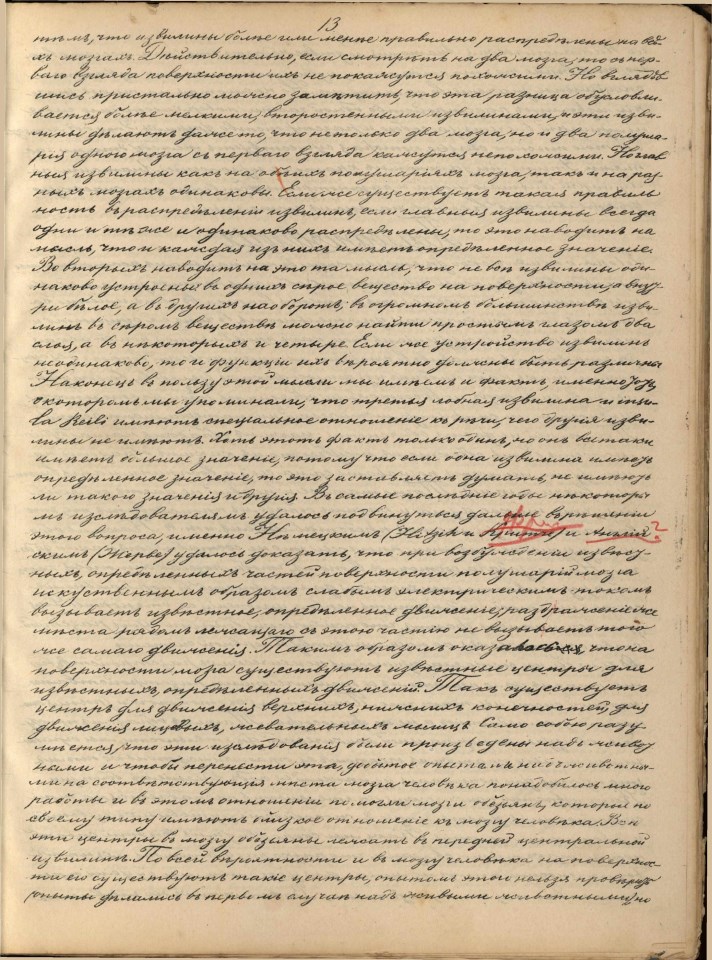 13
тѣмъ, что извилины болѣе или менѣе правильно распредѣлены на всѣ-
хъ мозгахъ. Дѣйствительно, если смотрѣть на два мозга, то съ пер-
ваго взгляда поверхности ихъ не покажутся похожими. Но вглядѣв-
шись пристально можно замѣтить, что эта разница обусловли-
вается болѣе мелкими, второстепенными извилинами, и эти изви-
лины дѣлаютъ даже то, что не только два мозга, но и два полуша-
рія одного мозга съ перваго взгляда кажутся непохожими. Но глав-
ныя извилины какъ на обѣихъ полушаріяхъ мозга, такъ и на раз-
ныхъ мозгахъ одинаковы. Если же существуетъ такая правиль-
ность въ распредѣленіи извилинъ, если главныя извилины всегда
одни и тѣ же и одинаково распредѣлены, то это наводитъ на
мысль, что и каждая изъ нихъ имѣетъ опредѣленное значеніе.
Во вторыхъ наводитъ на это та мысль, что не всѣ извилины оди-
наково устроены: въ однихъ сѣрое вещество на поверхности, а внут-
ри бѣлое, а въ другихъ наоборотъ; въ огромномъ большинствѣ изви-
линъ въ сѣромъ веществѣ можно найти простымъ глазомъ два
слоя, а въ нѣкоторыхъ и четыре. Если же устройство извилинъ
неодинаково, то и функціи ихъ вѣроятно должны быть различны.
Наконецъ въ пользу этой мысли мы имѣемъ и фактъ, именно
о которомъ мы упоминали, что третья лобная извилина и insu-
la Reili имѣютъ спеціальное отношеніе къ рѣчи, чего другія изви-
лины не имѣютъ. Хоть этотъ фактъ только одинъ, но онъ все таки
имѣетъ большое значеніе, потому что если одна извилина имѣетъ
опредѣленное значеніе, то это заставляетъ думать, не имѣютъ
ли такого значенія и другія. Въ самые послѣдніе годы нѣкоторы-
мъ изслѣдователямъ удалось подвинуться далѣе въ рѣшеніи
этого вопроса, именно Нѣмецкимъ (Hitzik и Фричъ) и Англій-
скимъ (Ферье) удалось доказать, что при возбужденіи извѣст-
ныхъ, опредѣленныхъ частей поверхности полушарій мозга
искуственнымъ образомъ слабымъ электрическимъ токомъ
вызываетъ извѣстное, опредѣленное движеніе; раздраженіе же
мѣста рядомъ лежащаго съ этою частію не вызываетъ того
же самаго движенія. Такимъ образомъ оказалось, что на
поверхности мозга существуютъ извѣстные центры для
извѣстныхъ, опредѣленныхъ движеній. Такъ существуетъ
центръ для движенія верхнихъ, нижнихъ конечностей, для
движенія лицевыхъ, жевательныхъ мышцъ. Само собою разу-
мѣется, что эти изслѣдованія были произведены надъ живот-
ными и чтобы перенести эта, добытое опытами надъ животны-
ми на соотвѣтствующія мѣста мозга человѣка понадобилось много
работы и въ этомъ отношеніи помогли мозги обезьянъ, которые по
своему типу имѣютъ близкое отношеніе къ мозгу человѣка. Всѣ
эти центры въ мозгу обезьяны лежатъ въ передней центральной
извилинѣ. По всей вѣроятности и въ мозгу человѣка на поверхнос-
ти его существуютъ такіе центры, опытомъ этого нельзя провѣрить
(опыты дѣлались въ первомъ случаѣ надъ живыми животными), но